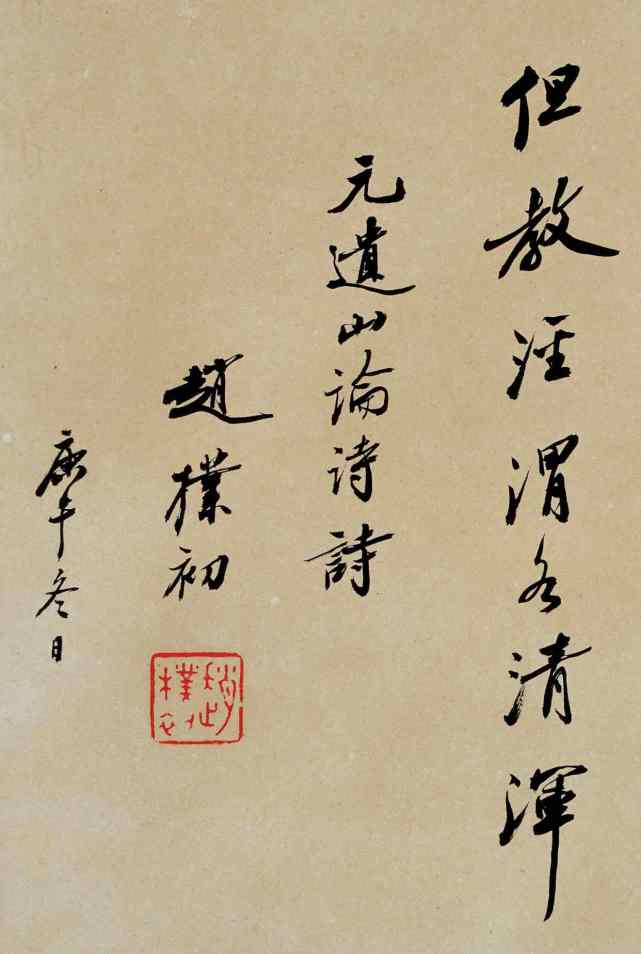 但教涇渭各清渾
元遺山論诗詩
趙樸初
庚午冬日
趙樸初